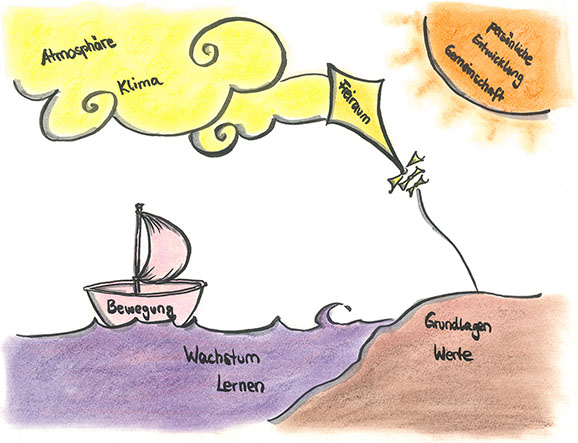 Atmosphäre
Klima
Freiraum
persönliche
Entwicklung
Gemeinschaft
Bewegung
Wachstum
Lernen
Grundlagen
Werte